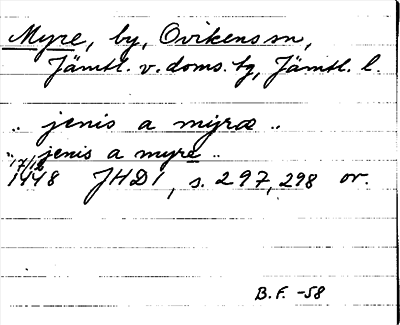 Myre, by, Ovikens sn,
Jämtl. v. doms. tg, Jämtl. l.
.. jenis a myræ ..
.. jenis a myre ..
17/12
1448 JHD I, s. 297, 298 or.
B.F. -58